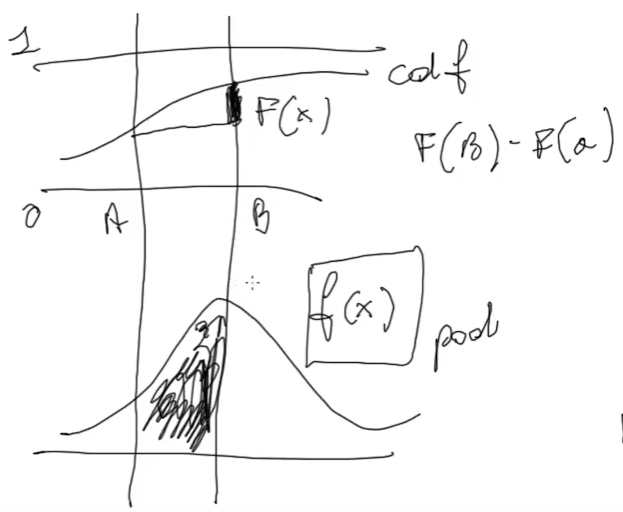 1
cdf
F(x)
F(B) - F(a)
0 A B
f(x)